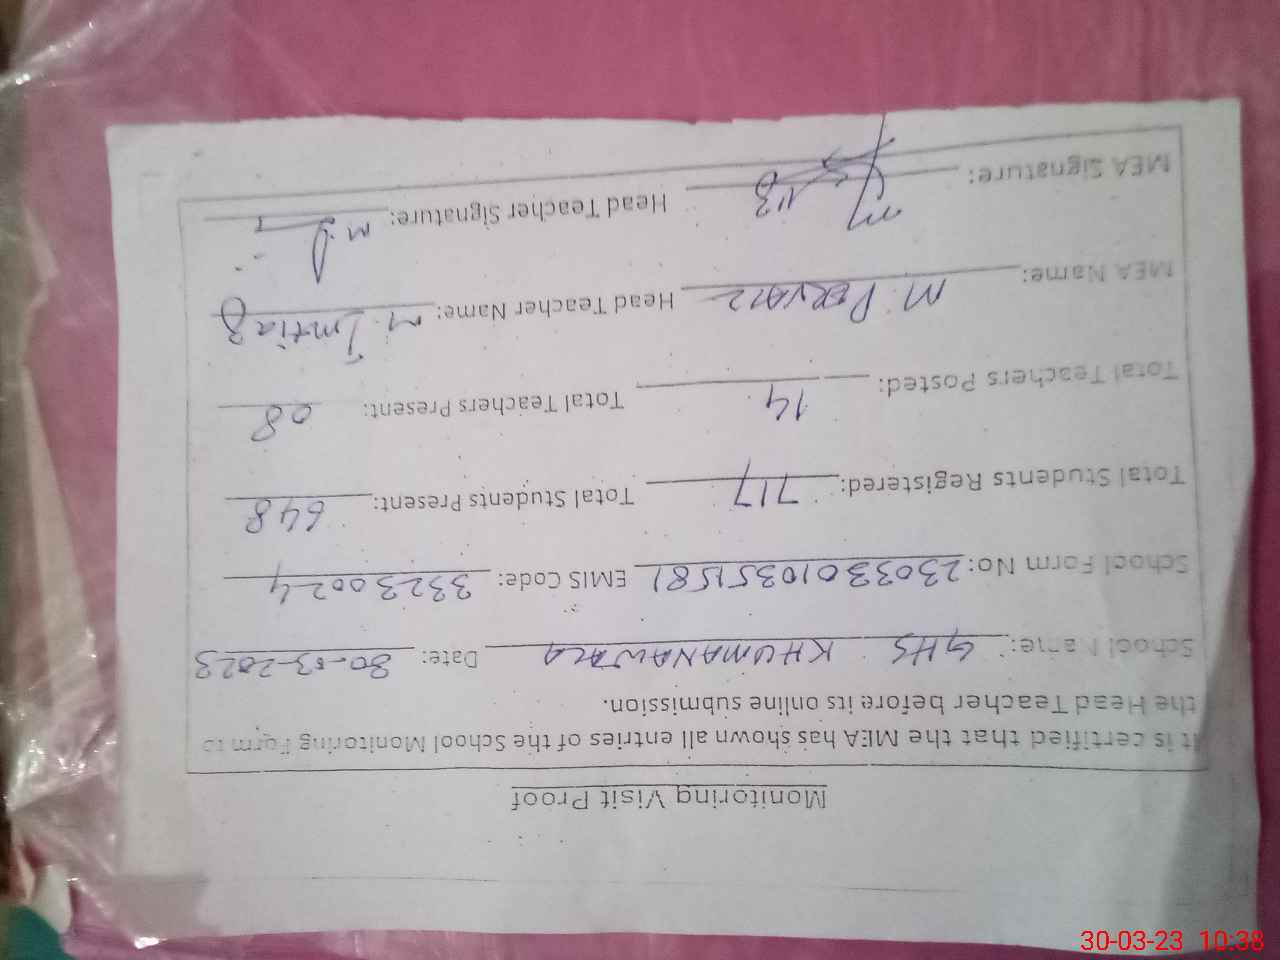 Monitoring Visit Proof
It is certified that the MEA has shown all entries of the School Monitoring Form to
the Head Teacher before its online submission.
School Name: GHS KHUMANAWALA Date: 30-03-2023
School Form No: 23033010351581 EMIS Code: 33230024
Total Students Registered: 717 Total Students Present: 648
Total Teachers Posted: 14 Total Teachers Present: 08
MEA Name: M. PERVAIZ Head Teacher Name: M. Imtiaz
MEA Signature: Head Teacher Signature:
30-03-23 10:38